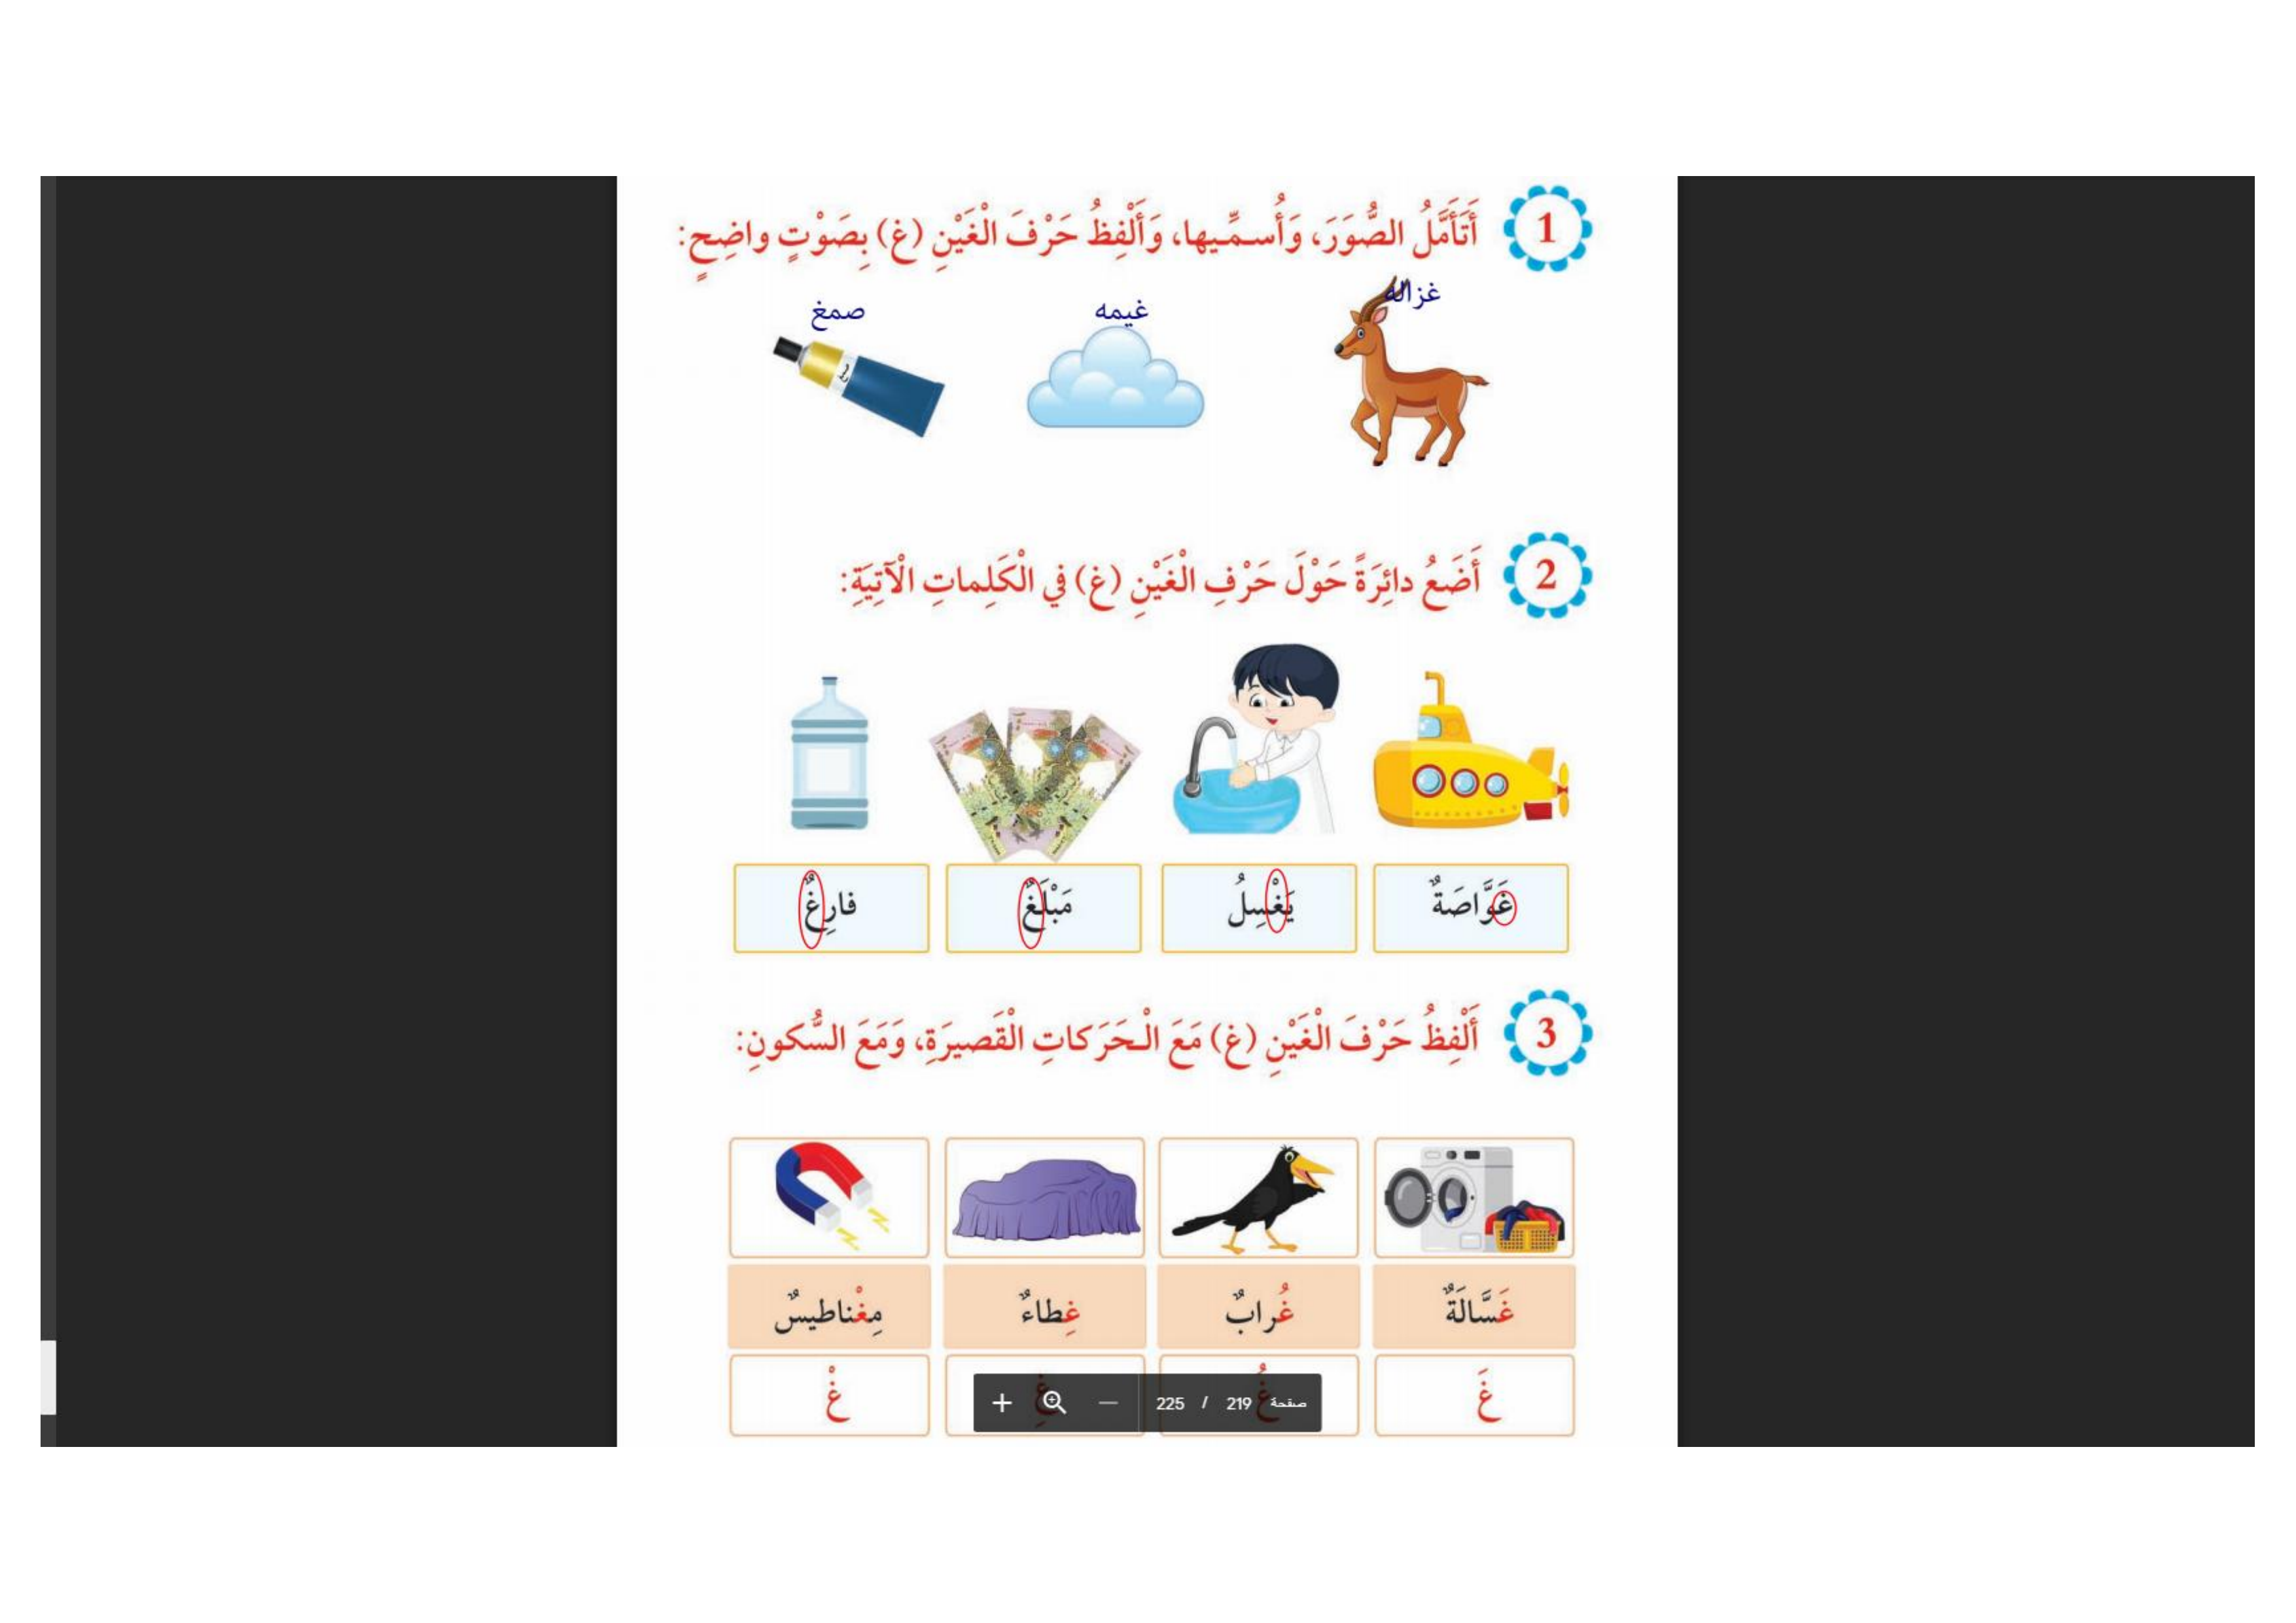 1 أَتَأَمَّلُ الصُّوَرَ، وَأُسمِّيها، وَأَلْفِظُ حَرْفَ الْغَيْنِ (غ) بِصَوْتٍ واضِحٍ:
غزاله غيمه صمغ
2 أَضَعُ دائِرَةً حَوْلَ حَرْفِ الْغَيْنِ (غ) في الْكَلِماتِ الْآتِيَةِ:
غَوَّاصَةٌ يَغْسِلُ مَبْلَغٌ فارِغٌ
3 أَلْفِظُ حَرْفَ الْغَيْنِ (غ) مَعَ الْحَرَكاتِ الْقَصيرَةِ، وَمَعَ السُّكونِ:
غَسَّالَةٌ غُرابٌ غِطاءٌ مِغْناطيسٌ
غَ غُ غِ غْ
صفحة 219 / 225